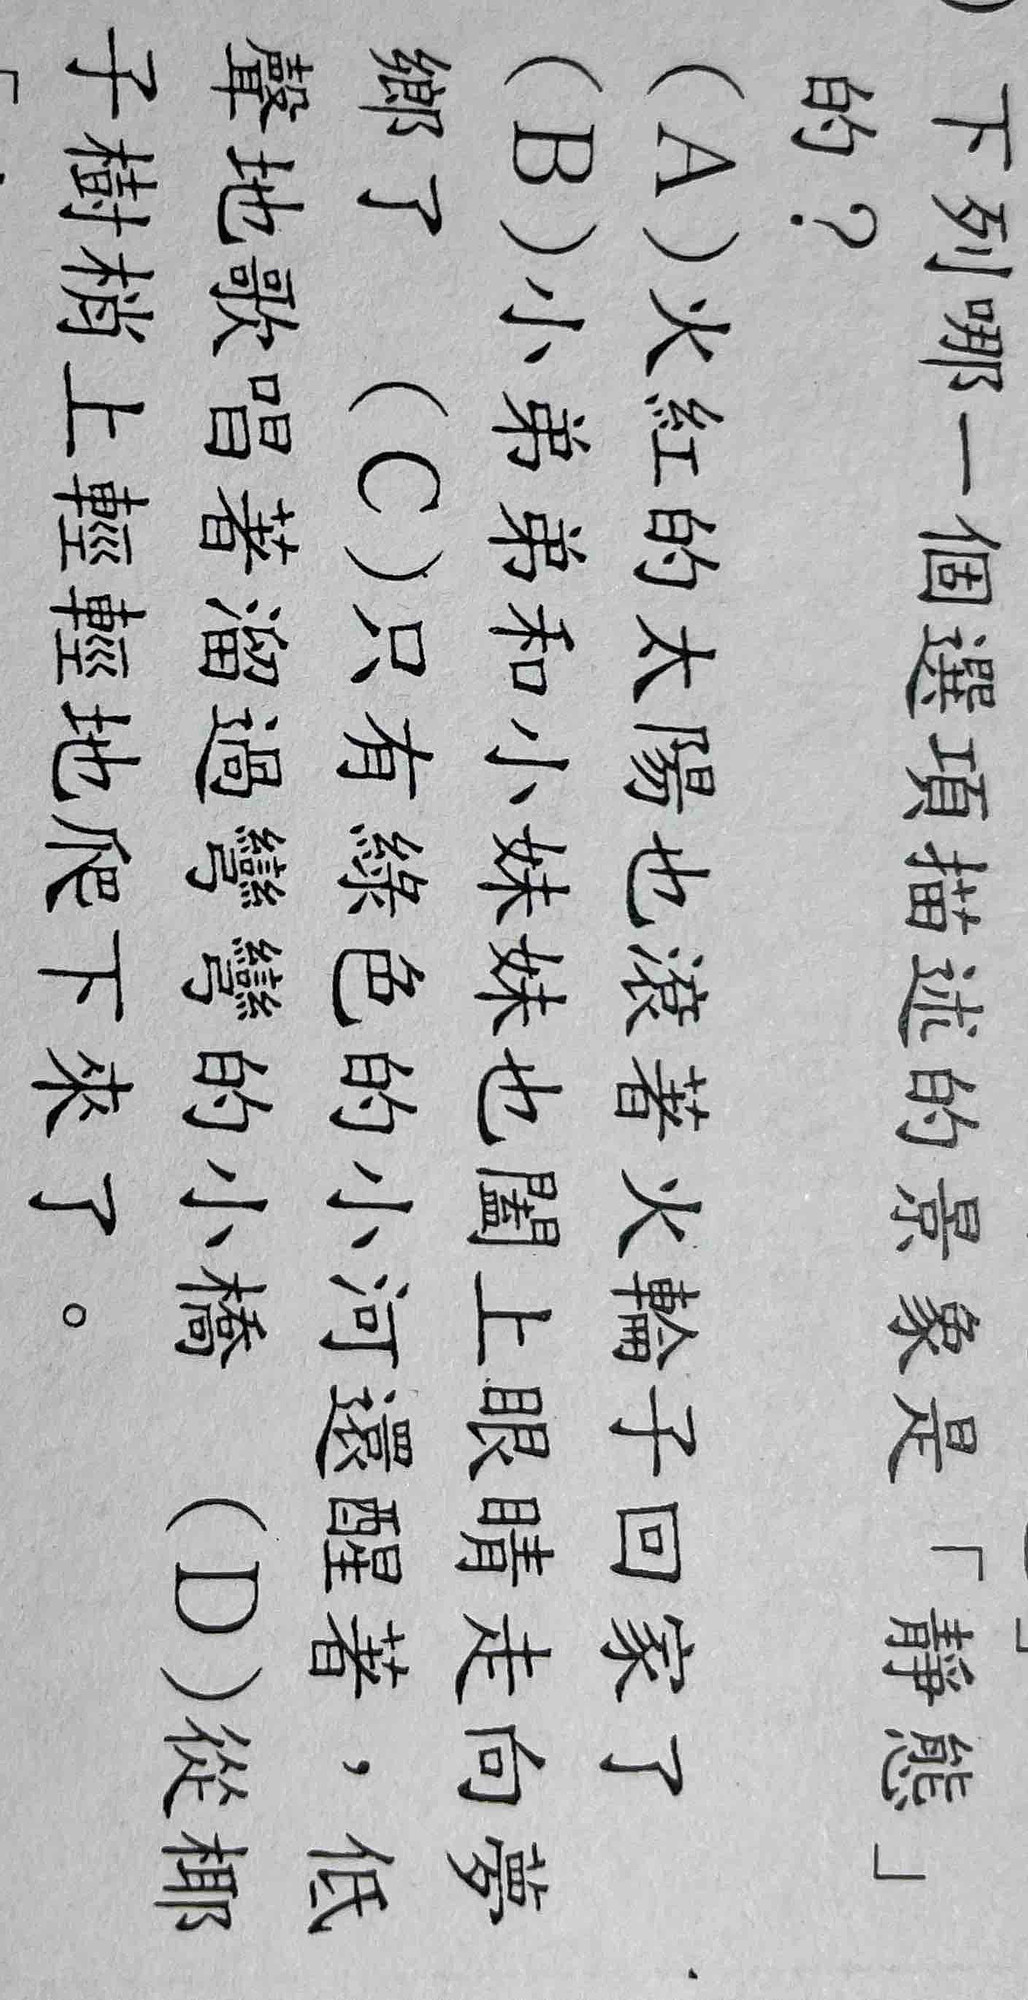 下列哪一個選項描述的景象是「靜態」
的？
（A）火紅的太陽也滾著火輪子回家了
（B）小弟弟和小妹妹也闔上眼睛走向夢
鄉了　（C）只有綠色的小河還醒著，低
聲地歌唱著溜過彎彎的小橋　（D）從椰
子樹梢上輕輕地爬下來了。